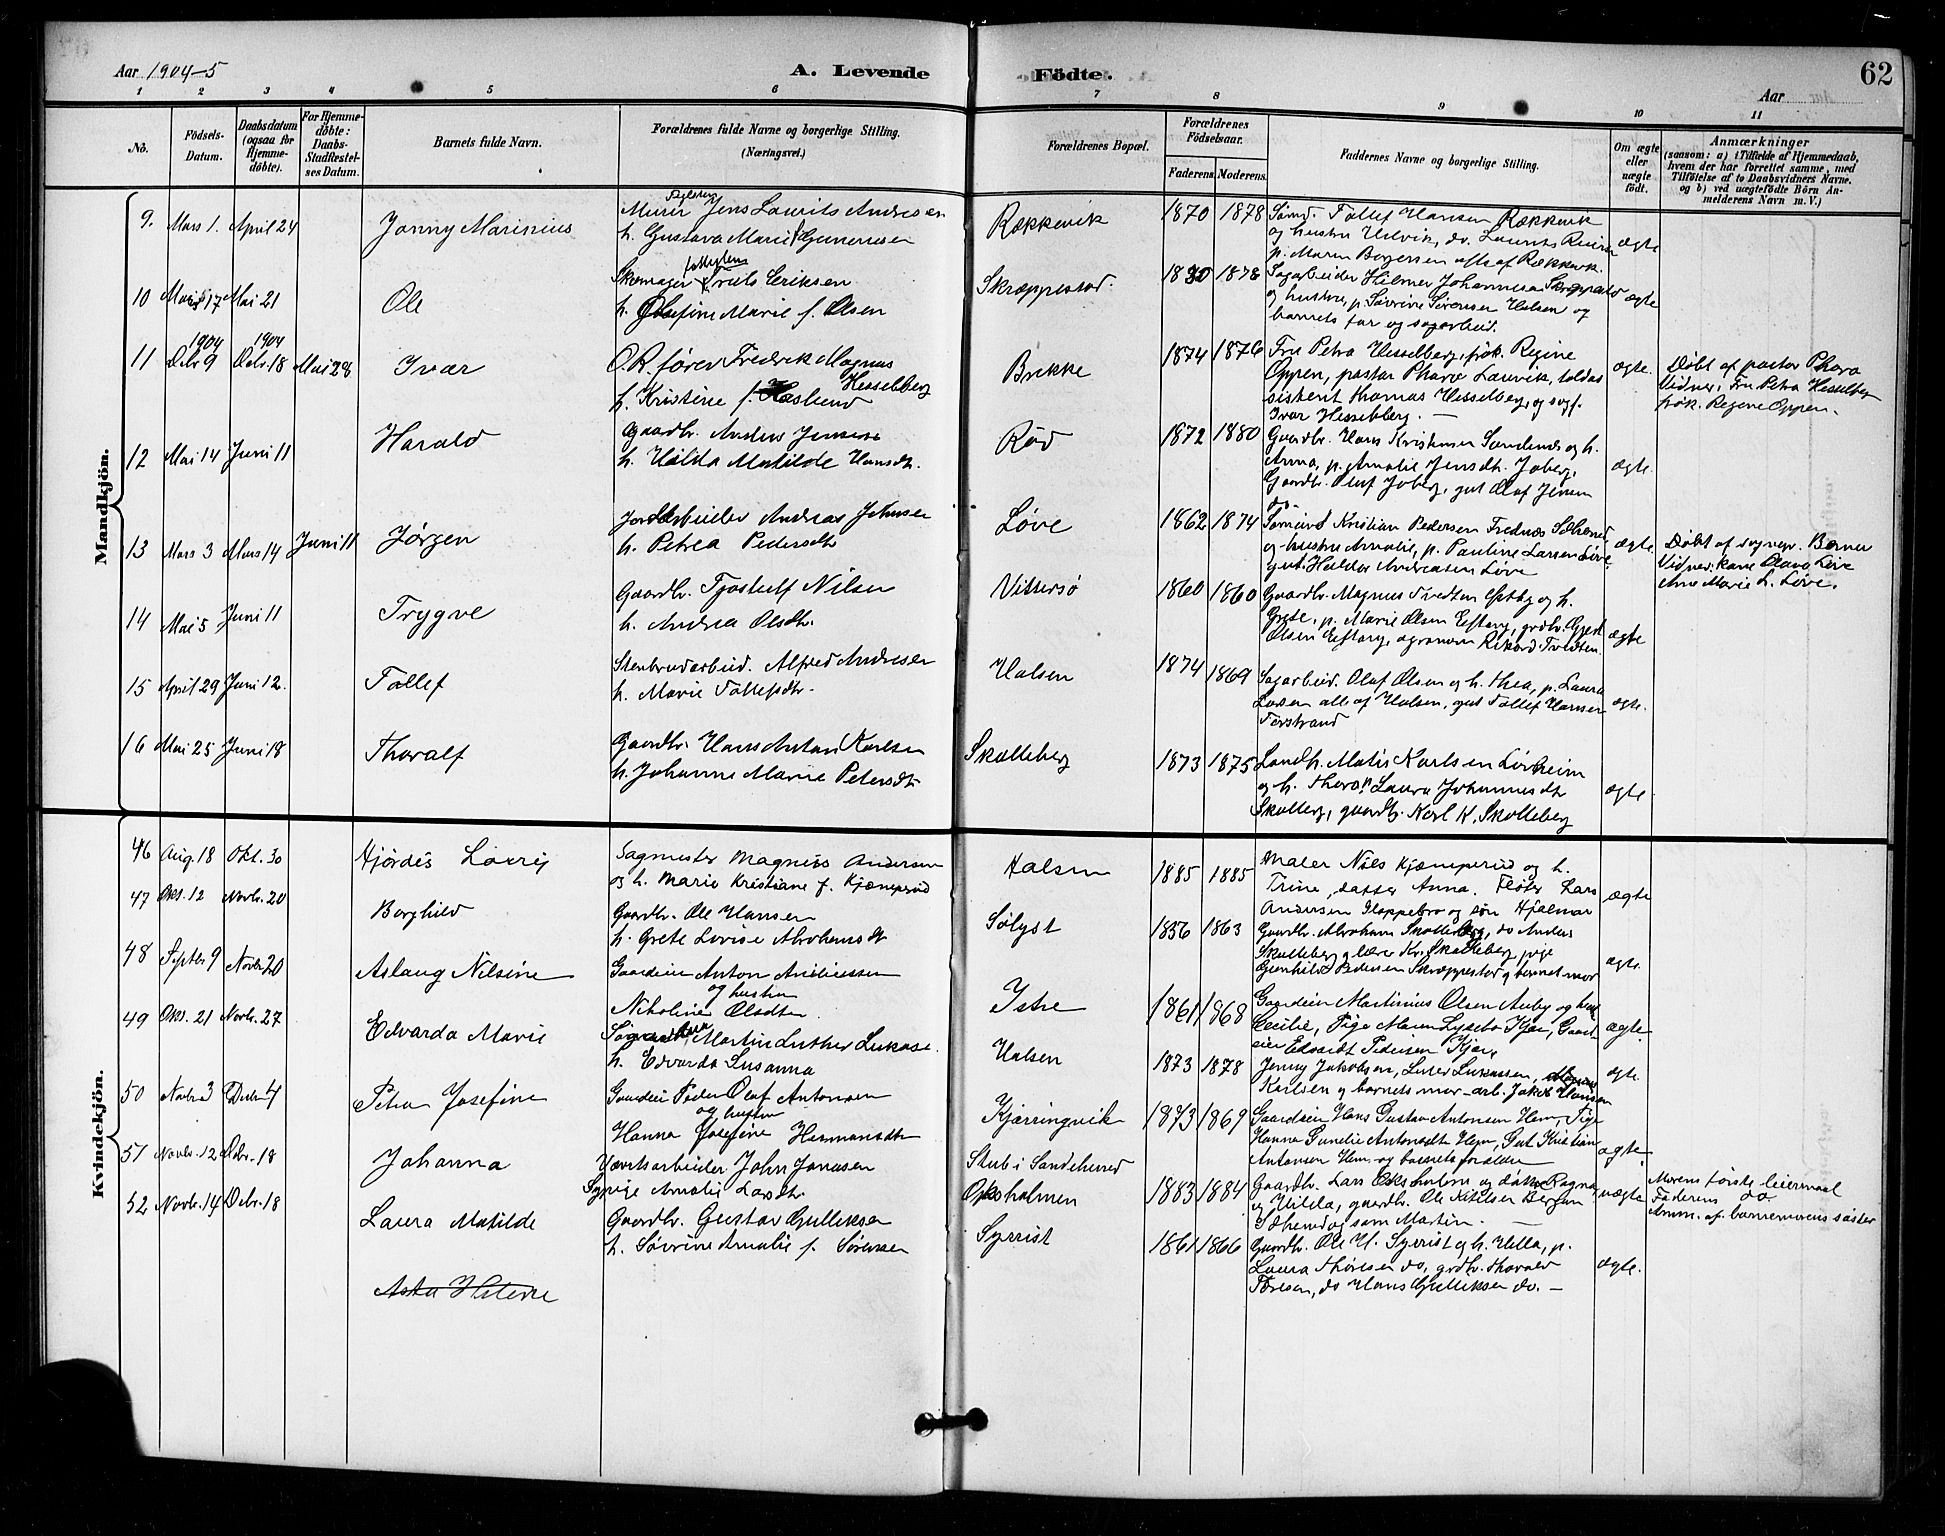 Aar 1904-5
A. Levende Födte.
62
Aar
1 2 3 4 5 6 7 8 9 10 11
No.
Födsels-Datum.
Daabsdatum (ogsaa for Hjemme-döbte).
For Hjemme-döbte: Daabs-Stadfestel-ses Datum.
Barnets fulde Navn.
Forældrenes fulde Navne og borgerlige Stilling. (Næringsvei.)
Forældrenes Bopæl.
Forældrenes Födselsaar.
Faderens. Moderens.
Faddernes Navne og borgerlige Stilling.
Om ægte eller uægte födt.
Anmærkninger
(saasom: a) i Tilfælde af Hjemmedaab, hvem der har forrettet samme, med Tilföielse af to Daabsvidners Navne, og b) ved uægtefödte Börn Anmelderens Navn m. V.)
Mandkjön.
9. Mars 1. April 24
Jonny Marinius
Murer Jens Laurits Andresen
h. Gustava Marie Gunersen
Rækkevik
1870 1878
Sömd. Tollef Hansen Rækkevik
og hustru Helvik, do. Laurits
p. Maren Borgersen alle af Rækkevik.
ægte
10 Mars 17 Mai 21
Ole
Skomager Nils Eriksen
h. Josefine Marie f. Olsen
Skræppestad.
1878
Sagarbeider Hilmer Johannesen Skræppestad
og hustru, p. Sövrine Sörensen Halsen og
barnets far og sagarbeid.
ægte
11 1904 Debr 9 1904 Debr. 18 Mai 28
Ivar
O.R. förer Fredrik Magnus Hesselberg
h. Kristine f. Haslund
Brekke
1874 1876
Fru Petra Hesselberg, frök. Regine
Oppen, pastor Pharo Laurvik, toldas
sistent Thomas Hesselberg, og sagf.
Ivar Hesselberg. —
ægte.
Döbt af pastor Pharo
Vidner: Fru Petra Hesselberg
frök. Regine Oppen.
12 Mai 14 Juni 11
Harald
Gaardbr. Anders Jensen
h. Hilda Matilde Hansdt.
Röd
1872 1880
Gaardbr. Hans Kristensen Sundenes og h.
Anna, p. Amalie Jensdt. Joberg,
Gaardbr. Oluf Joberg, gut Olaf Jensen
do.
ægte.
13 Mars 3 Mars 14 Juni 11
Jörgen
Jordarbeider Andreas Johnsen
h. Petrea Pedersdt
Löve
1862 1874
Sömand Kristian Pedersen Frednæs
og hustru Amalie, p. Pauline Larsen Löve,
gut Haldor Andreasen Löve
ægte.
Döbt af sognepr. Berner
Vidner: kone Olava Löve
Ane Marie L. Löve.
14 Mai 5 Juni 11
Trygve
Gaardbr. Tjostulf Nilsen
h. Andrea Olsdtr.
Vittersö
1860 1860
Gaardbr. Magnus Tvedten Östby og h.
Grete, p. Marie Olsen Eftang, grdbr. Gjest
Olsen Eftang, agronom Rikard Tvedten.
ægte
15 April 29 Juni 12.
Tollef
Stenbrudarbeid. Alfred Andresen
h. Marie Tollefsdtr.
Halsen
1874 1869
Sagarbeid. Olaf Olsen og h. Thea, p. Laura
Larsen alle af Halsen, gut Tollef Hansen
Torstrand
ægte.
16 Mai 25 Juni 18
Thoralf
Gaardbr. Hans Anton Karlsen
h. Johanne Marie Petersdt.
Skalleberg
1873 1875
Landh. Matis Karlsen Lövheim
og h. Thora, p. Laura Johannesdt
Skalleberg, gaardb. Karl K. Skalleberg
ægte
Kvindekjön.
46 Aug. 18 Okt. 30
Hjördis Lovrig
Sagmester Magnus Andersen
og h. Marie Kristiane f. Kjæmperud
Halsen
1885 1885
Maler Nils Kjæmperud og h.
Trine, datter Anna. Flöter Lars
Andersen Kloppebro og sön Hjalmar
ægte
47 Okt. 12 Novbr. 20
Borghild
Gaardbr. Ole Hansen
h. Grete Lovise Abrahamsdt
Sölyst
1856 1863
Gaardbr. Abraham Skalleberg, do Anders
Skalleberg og lærer Kr. Skalleberg, pige
Gunhild Pedersen Skræppestad og barnet mor
ægte.
48 Septbr 9 Novbr 20
Aslaug Nilsine
Gaardeier Anton
og hustru
Nikoline Olsdtr.
Istre
1861 1868
Gaardeier Martinius Olsen Auby og hust
Cecilie, Pige Maren Lysebo Kjær, Gaard-
eier Edvardt Pedersen Kjær,
ægte.
49 Okt. 21 Novbr. 27
Edvarda Marie
Martin Luther Lukase.
h. Edvarda Susanna
Halsen
1873 1878
Jenny Jakobsen, Luise Lukassen,
Karlsen og barnets mor. arb. Jakob Hansen
ægte.
50 Novbr 3 Debr 4
Petra Josefine
Gaardeier Peder Olaf Antonsen
og hustru
Hanna Josefine Hermansdtr
Kjærringvik
1873 1869
Gaardeier Hans Gustav Antonsen Hem, Pige
Hanna Gunelie Antonsdt Hem, Gut Kristian
Antonsen Hem og barnets forældre
ægte,
51 Novbr. 12 Debr. 18
Johanna
Værftsarbeider John Jonassen
Sypige Amalie Larsdtr.
Stub i Sandeherred
Oksholmen
1883 1884
Gaardbr. Lars Oksholmen og döttre Ragna
og Hilda, gaardbr. Ole Nilsen Bergan
Sthend og söm Martin. —
uægte
Morens förste leiermaal
Faderens do
Anm. af barnemorens söster
52 Novbr. 14 Debr. 18
Laura Matilde
Gaardbr. Gustav Gulliksen
h. Sövrine Amalie f. Sörensen
Syrrist
1861 1866
Gaardbr. Ole H. Syrrist og h. Helle, p.
Laura Thoresen do, grdbr. Thorvald
Toresen, do Hans Gulliksen do. —
ægte.